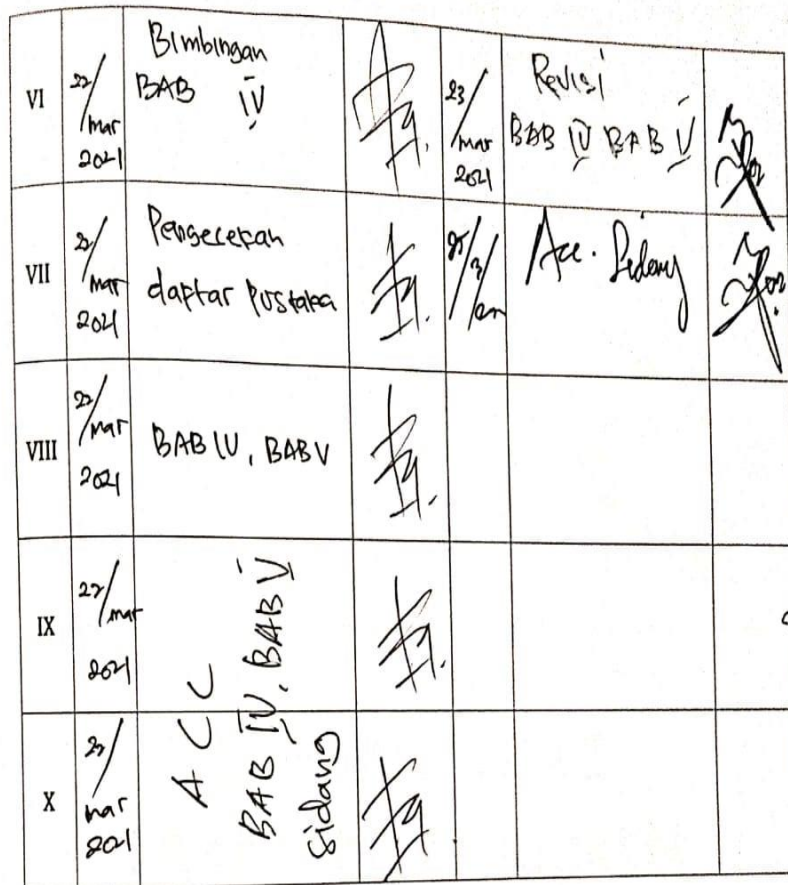 VI
22/
mar
2021
Bimbingan
BAB IV
23/
mar
2021
Revisi
BAB IV BAB V
VII
22/
mar
2021
Pengecekan
daftar Pustaka
25/3/
Acc. Sidang
VIII
22/
mar
2021
BAB IV, BAB V
IX
22/
mar
2021
X
22/
mar
2021
ACC
BAB IV, BAB V
Sidang